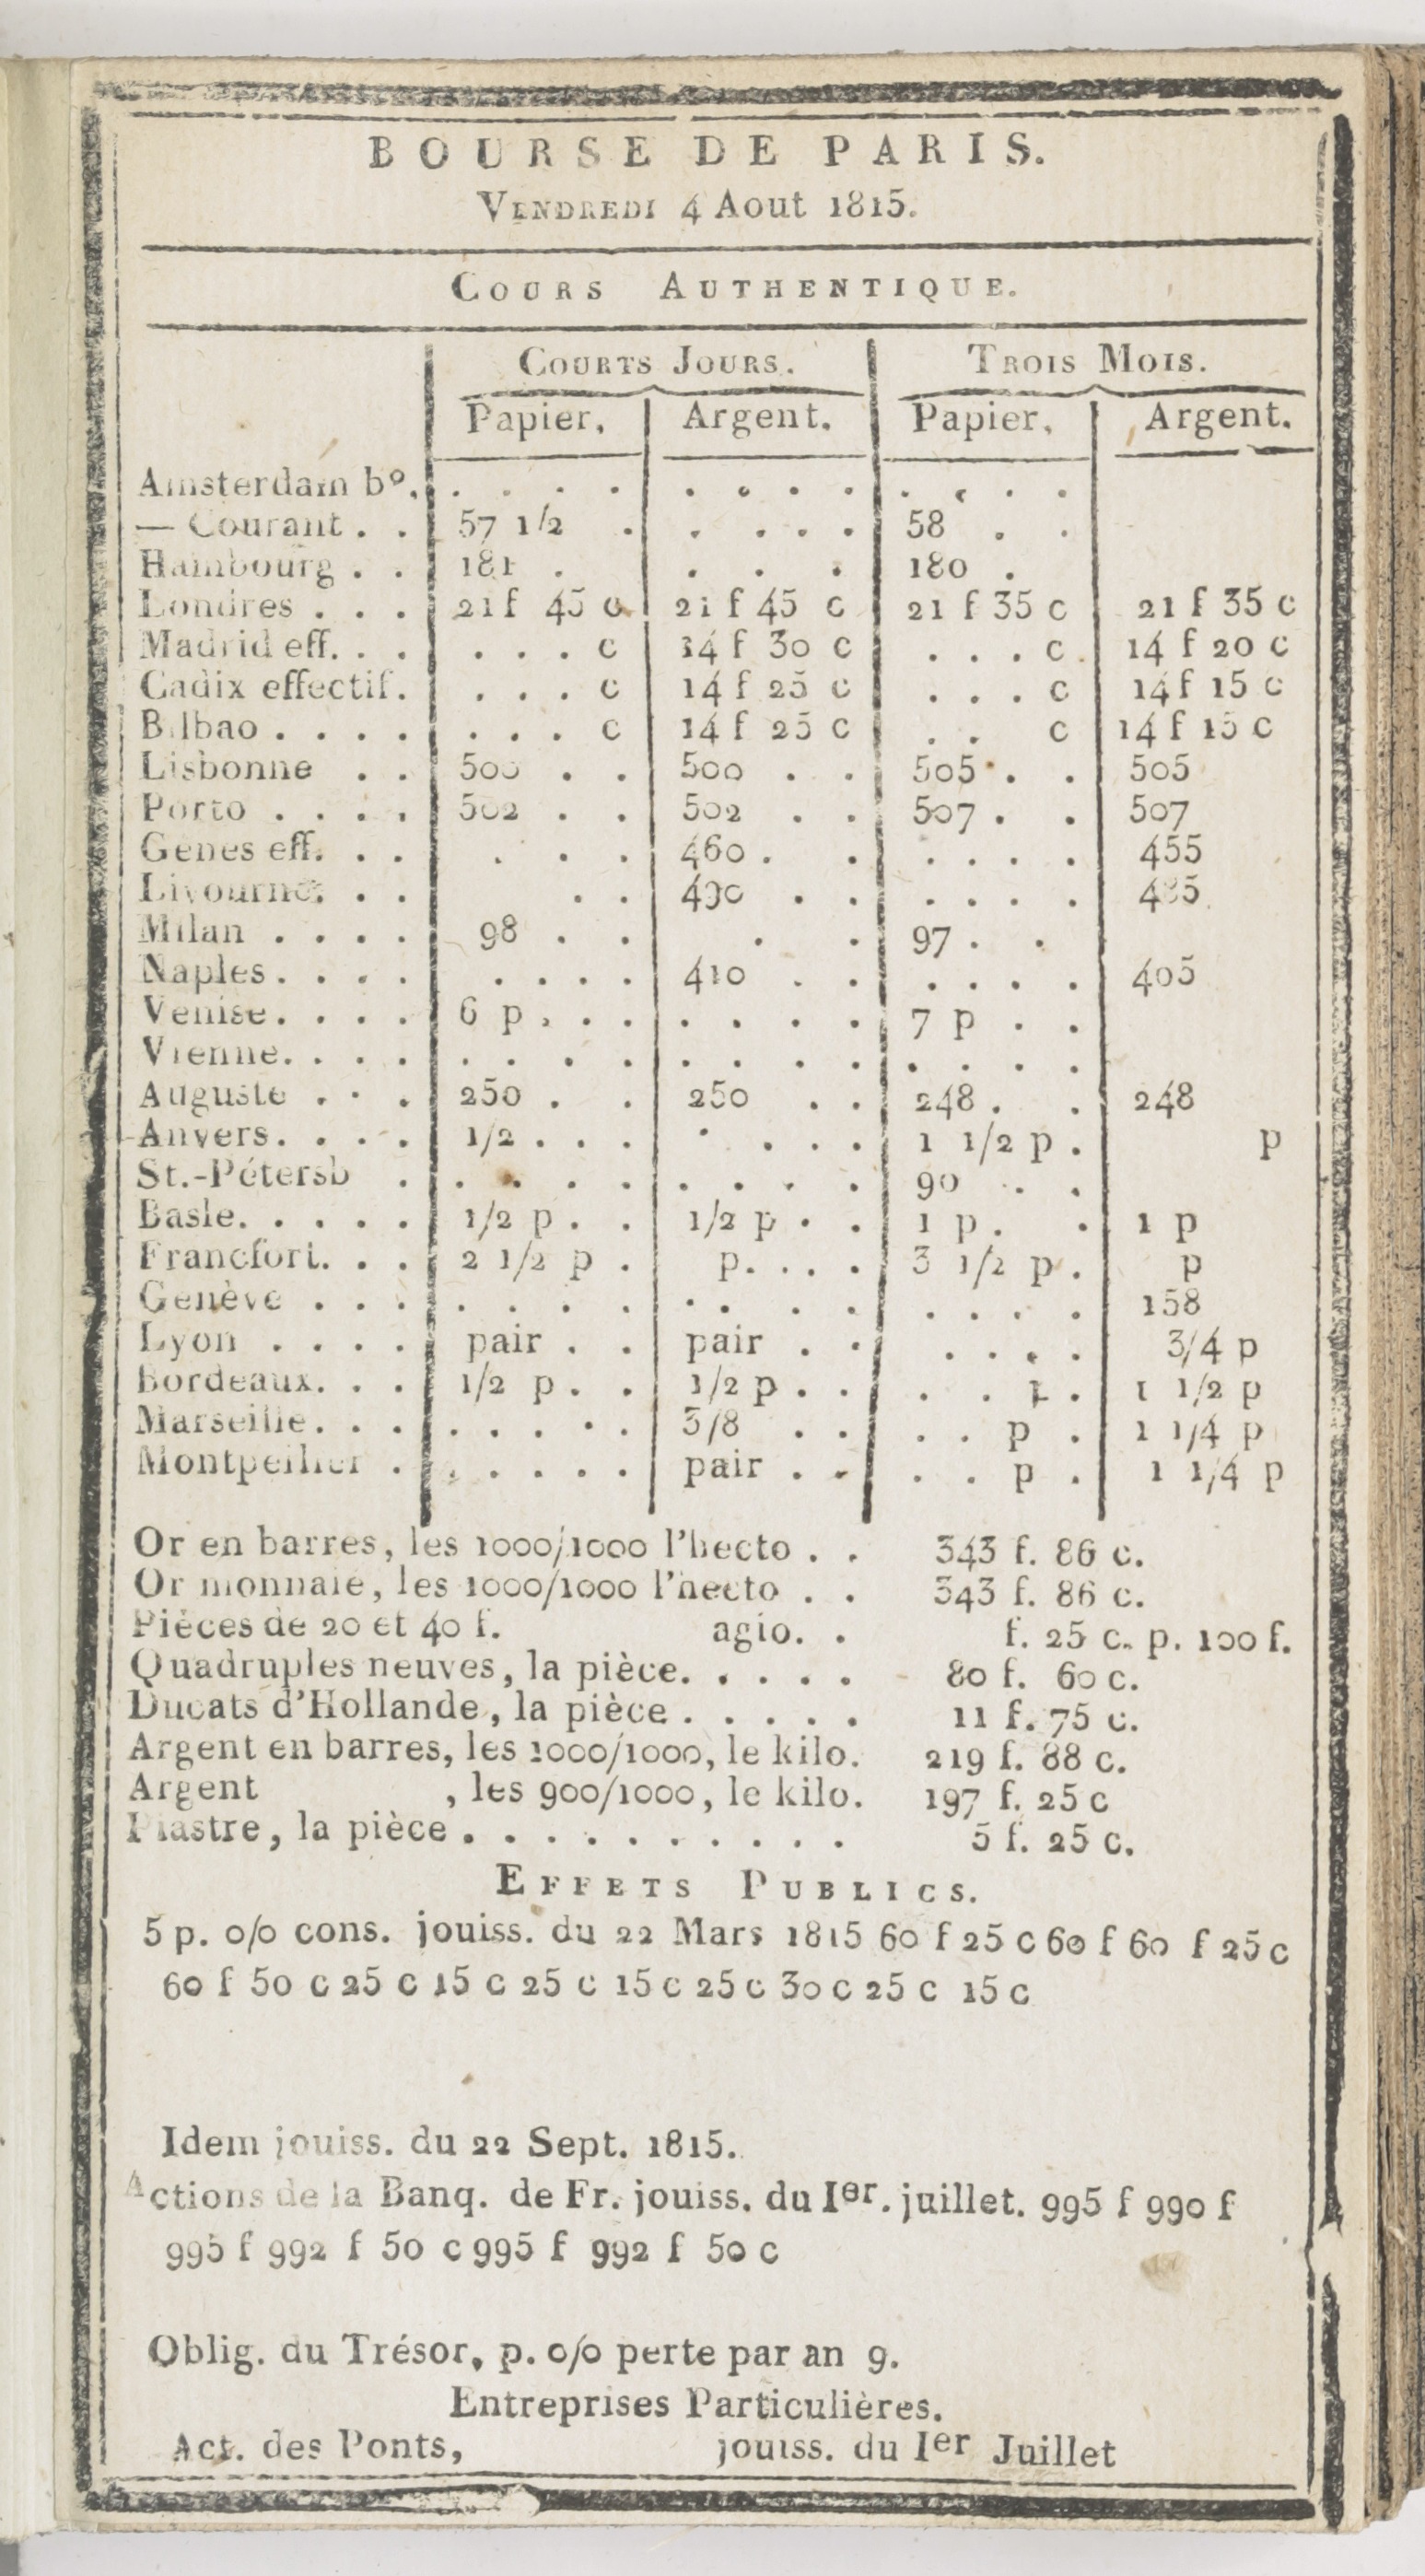 BOURSE DE PARIS.
VENDREDI 4 Aout 1815.
COURS AUTHENTIQUE.
COURTS JOURS. TROIS MOIS.
Papier, Argent. Papier, Argent.
Amsterdam bº. . . . . . . . . . . . .
— Courant . . 57 1/2 . . . . . 58 . .
Hambourg . . 181 . . . . 180 .
Londres . . . 21 f 45 c 21 f 45 c 21 f 35 c 21 f 35 c
Madrid eff. . . . . . c 14 f 30 c . . . c 14 f 20 c
Cadix effectif. . . . c 14 f 25 c . . . c 14 f 15 c
Bilbao . . . . . . . c 14 f 25 c . . c 14 f 15 c
Lisbonne . . 500 . . 500 . . 505 . . 505
Porto . . . . 502 . . 502 . . 507 . . 507
Genes eff. . . . . . 460 . . . . . . 455
Livourne. . . . . 490 . . . . . . 485
Milan . . . . 98 . . . . 97 . .
Naples . . . . . . . . 410 . . . . . . 405
Venise. . . . 6 p . . . . . . . 7 p . .
Vienne. . . . . . . . . . . . . . . .
Auguste . . . 250 . . 250 . . 248 . . 248
Anvers. . . . 1/2 . . . . . . . 1 1/2 p . p
St.-Pétersb . . . . . . . . . 90 . .
Basle. . . . . 1/2 p . . 1/2 p . . 1 p . . 1 p
Francfort. . . 2 1/2 p . p. . . . 3 1/2 p . p
Genève . . . . . . . . . . . . . . . 158
Lyon . . . . pair . . pair . . . . . . 3/4 p
Bordeaux. . . 1/2 p . . 1/2 p . . . . . 1 1/2 p
Marseille. . . . . . . . 3/8 . . . . p . 1 1/4 p
Montpellier . . . . . . pair . . . . p . 1 1/4 p
Or en barres, les 1000/1000 l'hecto . . 343 f. 86 c.
Or monnaie, les 1000/1000 l'hecto . . 343 f. 86 c.
Pièces de 20 et 40 f. agio. . f. 25 c. p. 100 f.
Quadruples neuves, la pièce. . . . . 80 f. 60 c.
Ducats d'Hollande, la pièce . . . . . 11 f. 75 c.
Argent en barres, les 1000/1000, le kilo. 219 f. 88 c.
Argent , les 900/1000, le kilo. 197 f. 25 c
Piastre, la pièce . . . . . . . . . . 5 f. 25 c.
EFFETS PUBLICS.
5 p. o/o cons. jouiss. du 22 Mars 1815 60 f 25 c 60 f 60 f 25 c
60 f 50 c 25 c 15 c 25 c 15 c 25 c 30 c 25 c 15 c
Idem jouiss. du 22 Sept. 1815.
Actions de la Banq. de Fr. jouiss. du Ier. juillet. 995 f 990 f
995 f 992 f 50 c 995 f 992 f 50 c
Oblig. du Trésor, p. o/o perte par an 9.
Entreprises Particulières.
Act. des Ponts, jouiss. du Ier Juillet